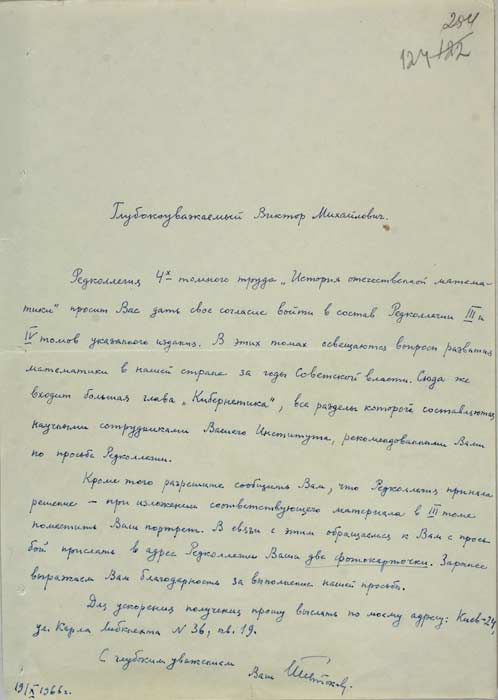 204
124
Глубокоуважаемый Виктор Михайлович.
Редколлегия 4х томного труда „История отечественной матема-
тики" просит Вас дать свое согласие войти в состав Редколлегии III и
IV томов указанного издания. В этих томах освещаются вопросы развития
математики в нашей стране за годы Советской власти. Сюда же
входит большая глава „Кибернетика", все разделы которой составляются
научными сотрудниками Вашего Института, рекомендованными Вами
по просьбе Редколлегии.
Кроме того разрешите сообщить Вам, что Редколлегия приняла
решение — при изложении соответствующего материала в III томе
поместить Ваш портрет. В связи с этим обращаемся к Вам с прось-
бой прислать в адрес Редколлегии Ваши две фотокарточки. Заранее
выражаем Вам благодарность за выполнение нашей просьбы.
Для ускорения получения прошу выслать по моему адресу: Киев-24
ул. Карла Либкнехта N 36, кв. 19.
С глубоким уважением
Ваш
19/X 1966 г.